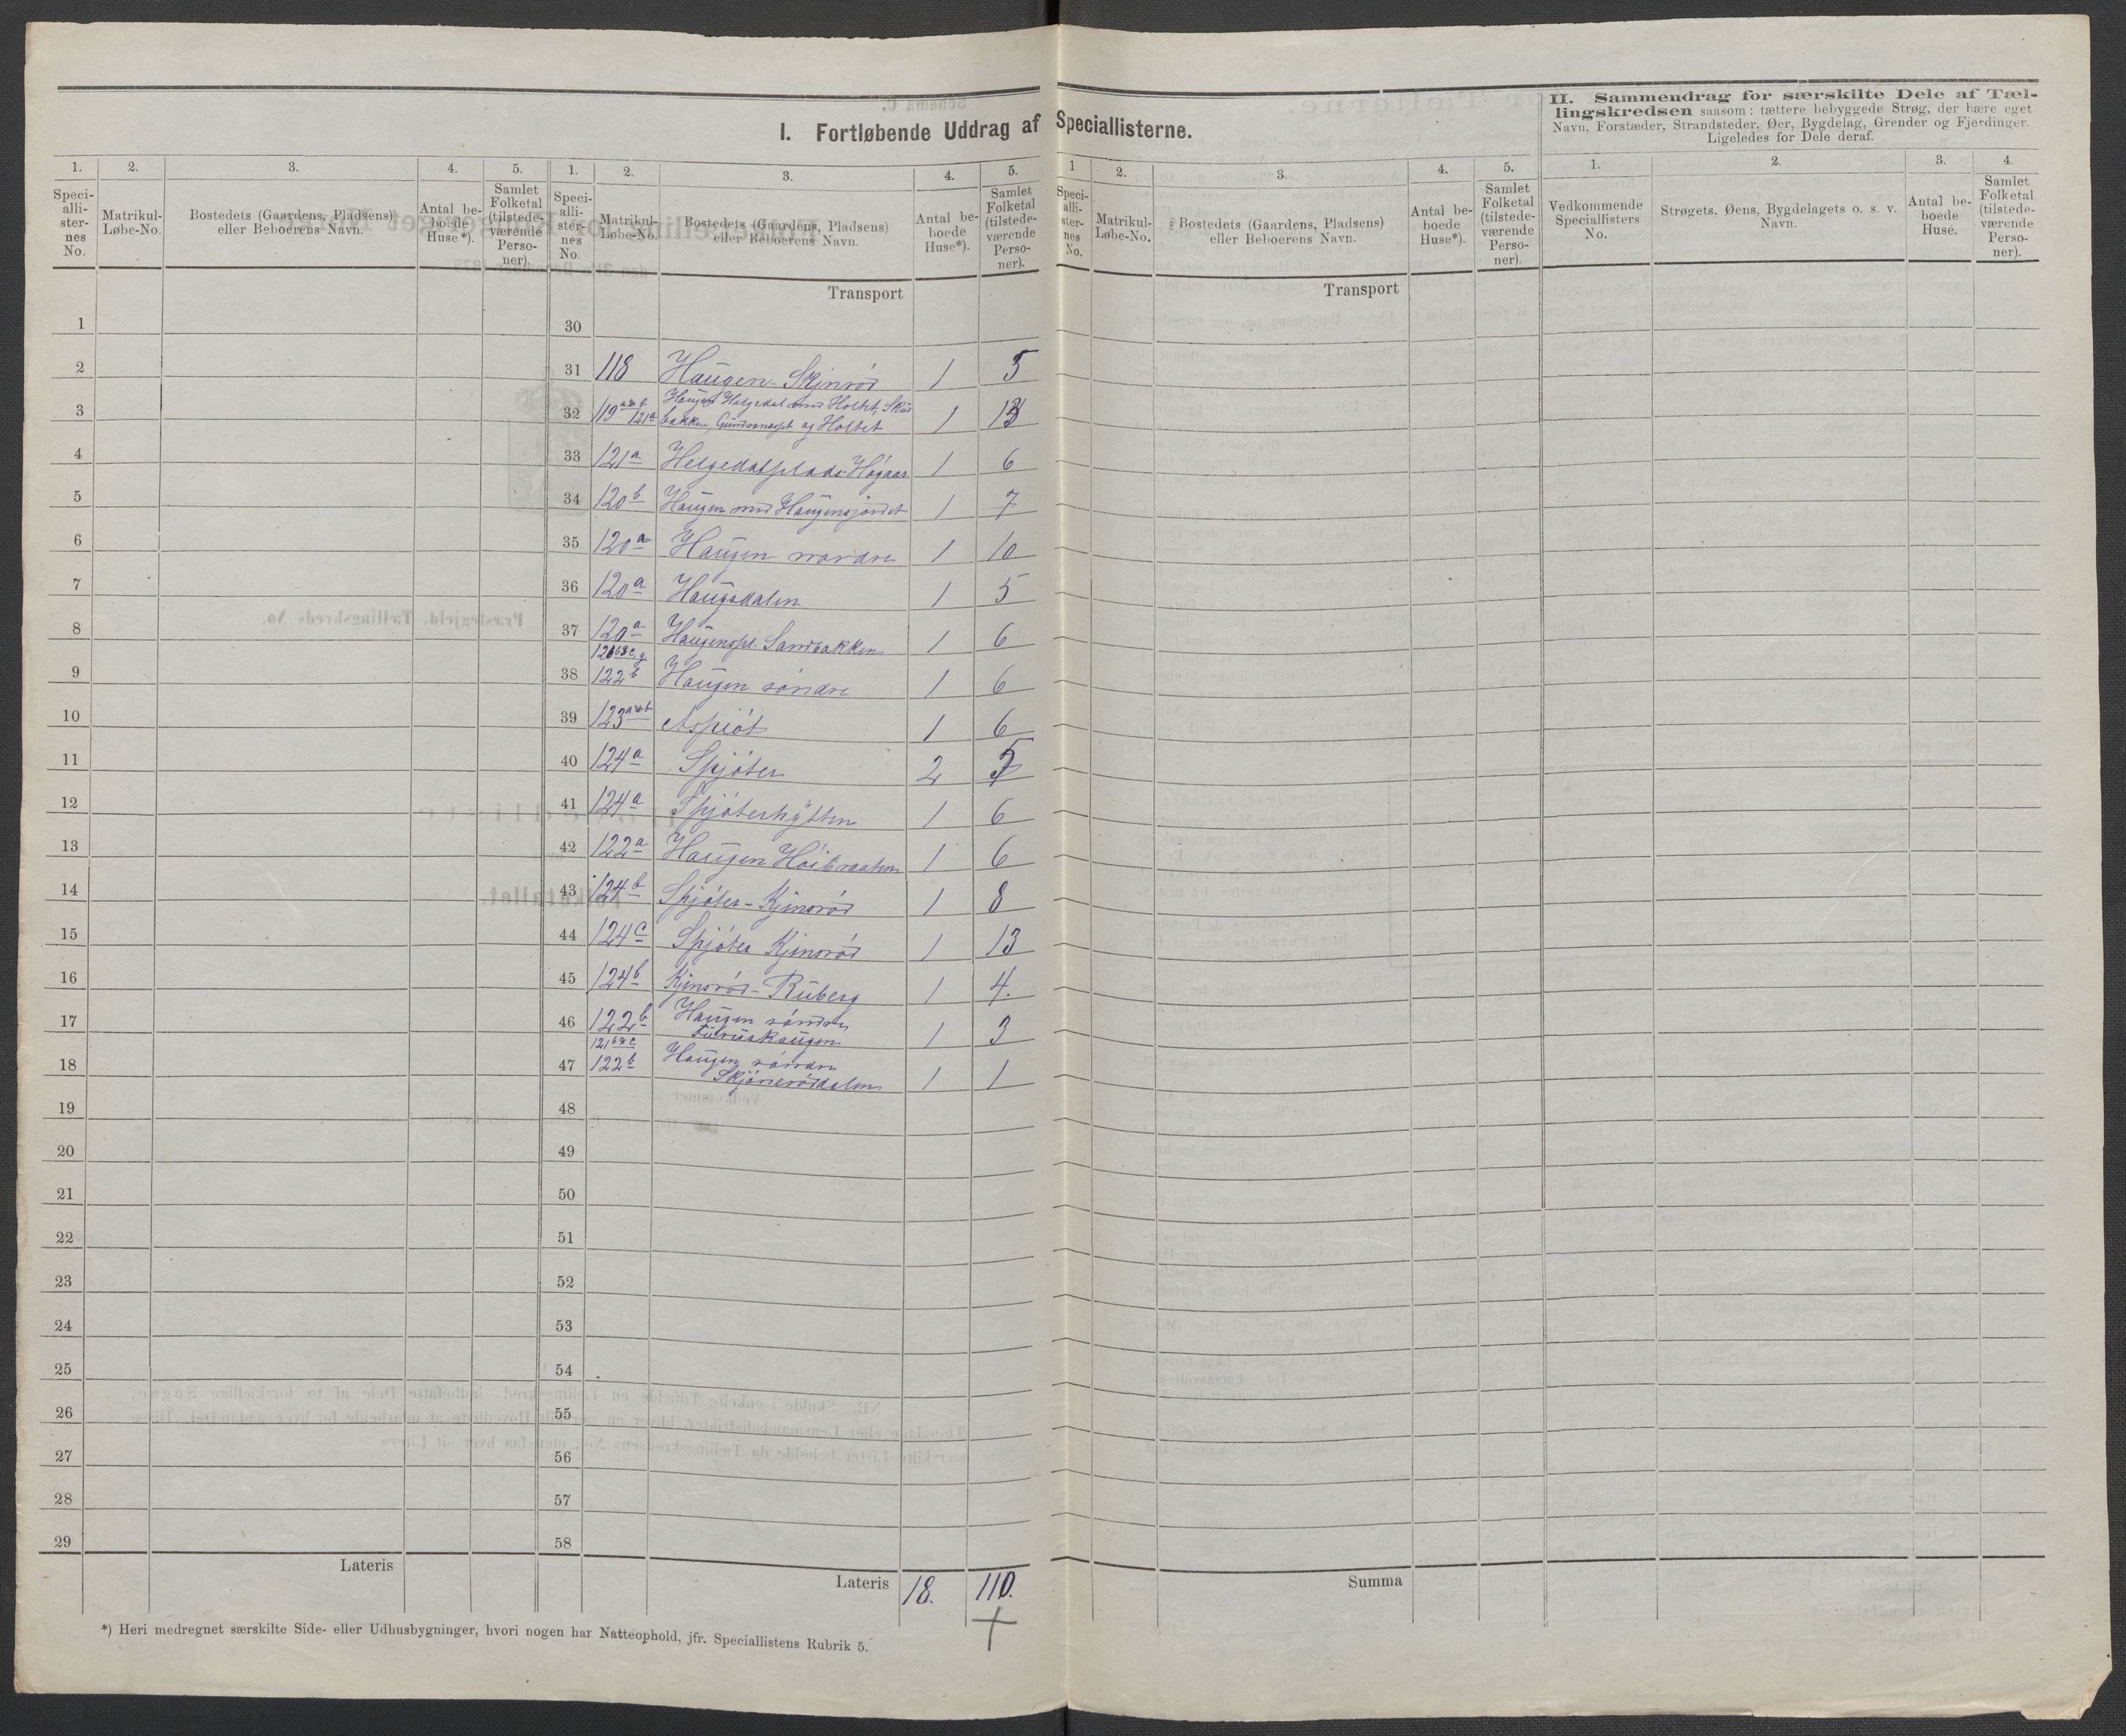 I. Fortløbende Uddrag af Speciallisterne.
II. Sammendrag for særskilte Dele af Tæl-
lingskredsen saasom: tættere bebyggede Strøg, der bære eget
Navn, Forstæder, Strandsteder, Øer, Bygdelag, Grender og Fjerdinger.
Ligeledes for Dele deraf.
1. 2. 3. 4. 5. 1. 2. 3. 4. 5. 1 2. 3. 4. 5. 1. 2. 3. 4.
Speci-
alli-
ster-
nes
No.
Matrikul-
Løbe-No.
Bostedets (Gaardens, Pladsens)
eller Beboerens Navn.
Antal be-
boede
Huse*).
Samlet
Folketal
(tilstede-
værende
Perso-
ner).
Speci-
alli-
ster-
nes
No.
Matrikul-
Løbe-No.
Bostedets (Gaardens, Pladsens)
eller Beboerens Navn.
Antal be-
boede
Huse*).
Samlet
Folketal
(tilstede-
værende
Perso-
ner).
Speci-
alli-
ster-
nes
No.
Matrikul-
Løbe-No.
Bostedets (Gaardens, Pladsens)
eller Beboerens Navn.
Antal be-
boede
Huse*).
Samlet
Folketal
(tilstede-
værende
Perso-
ner).
Vedkommende
Speciallisters
No.
Strøgets, Øens, Bygdelagets o. s. v.
Navn.
Antal be-
boede
Huse.
Samlet
Folketal
(tilstede-
værende
Perso-
ner).
Transport Transport
1 30
2 31 118 Haugen-Skinrød 1 5
3 32 119 a & b 121a Helgedal med Holtet, Skud
bakken, og Holtet 1 13
4 33 121a Helgedalplads Høgaas 1 6
5 34 120b Haugen med Haugensjordet 1 7
6 35 120a Haugen nordre 1 10
7 36 120a Haugsdalen 1 5
8 37 120a Haugenspl. Sandbakken 1 6
121 b & c
9 38 122b Haugen søndre 1 6
10 39 123 a & b Aspiöt 1 6
11 40 124a Spjøter 2 5
12 41 124a Spjøterhytten 1 6
13 42 122a Haugen Høibraaten 1 6
14 43 124b Spjøter-Kjinsrød 1 8
15 44 124c Spjøter Kjinsrød 1 13
16 45 124b Kjinsrød-Ruberg 1 4.
17 46 122b Haugen søndre 1 3
121 b & c
18 47 122b Haugen søndre
Skjønerøddalen 1 1
19 48
20 49
21 50
22 51
23 52
24 53
25 54
26 55
27 56
28 57
29 58
Lateris Lateris 18. 110. Summa
*) Heri medregnet særskilte Side- eller Udhusbygninger, hvori nogen har Natteophold, jfr. Speciallistens Rubrik 5.